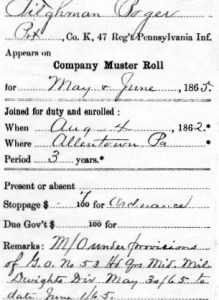 Tilghman Boger
Pvt, Co. K, 47 Reg't Pennsylvania Inf.
Appears on
Company Muster Roll
for May & June, 1865
Joined for duty and enrolled:
When Aug 4, 1862.*
Where Allentown Pa
Period 3 years.*
Present or absent
Stoppage $ 100 for Ordnance
Due Gov't $ 100 for
Remarks: M/O under provisions
of G.O. No 53 Hd Qrs Mid. Mil
Dwights Div May 30/65 to
date June 1/65.